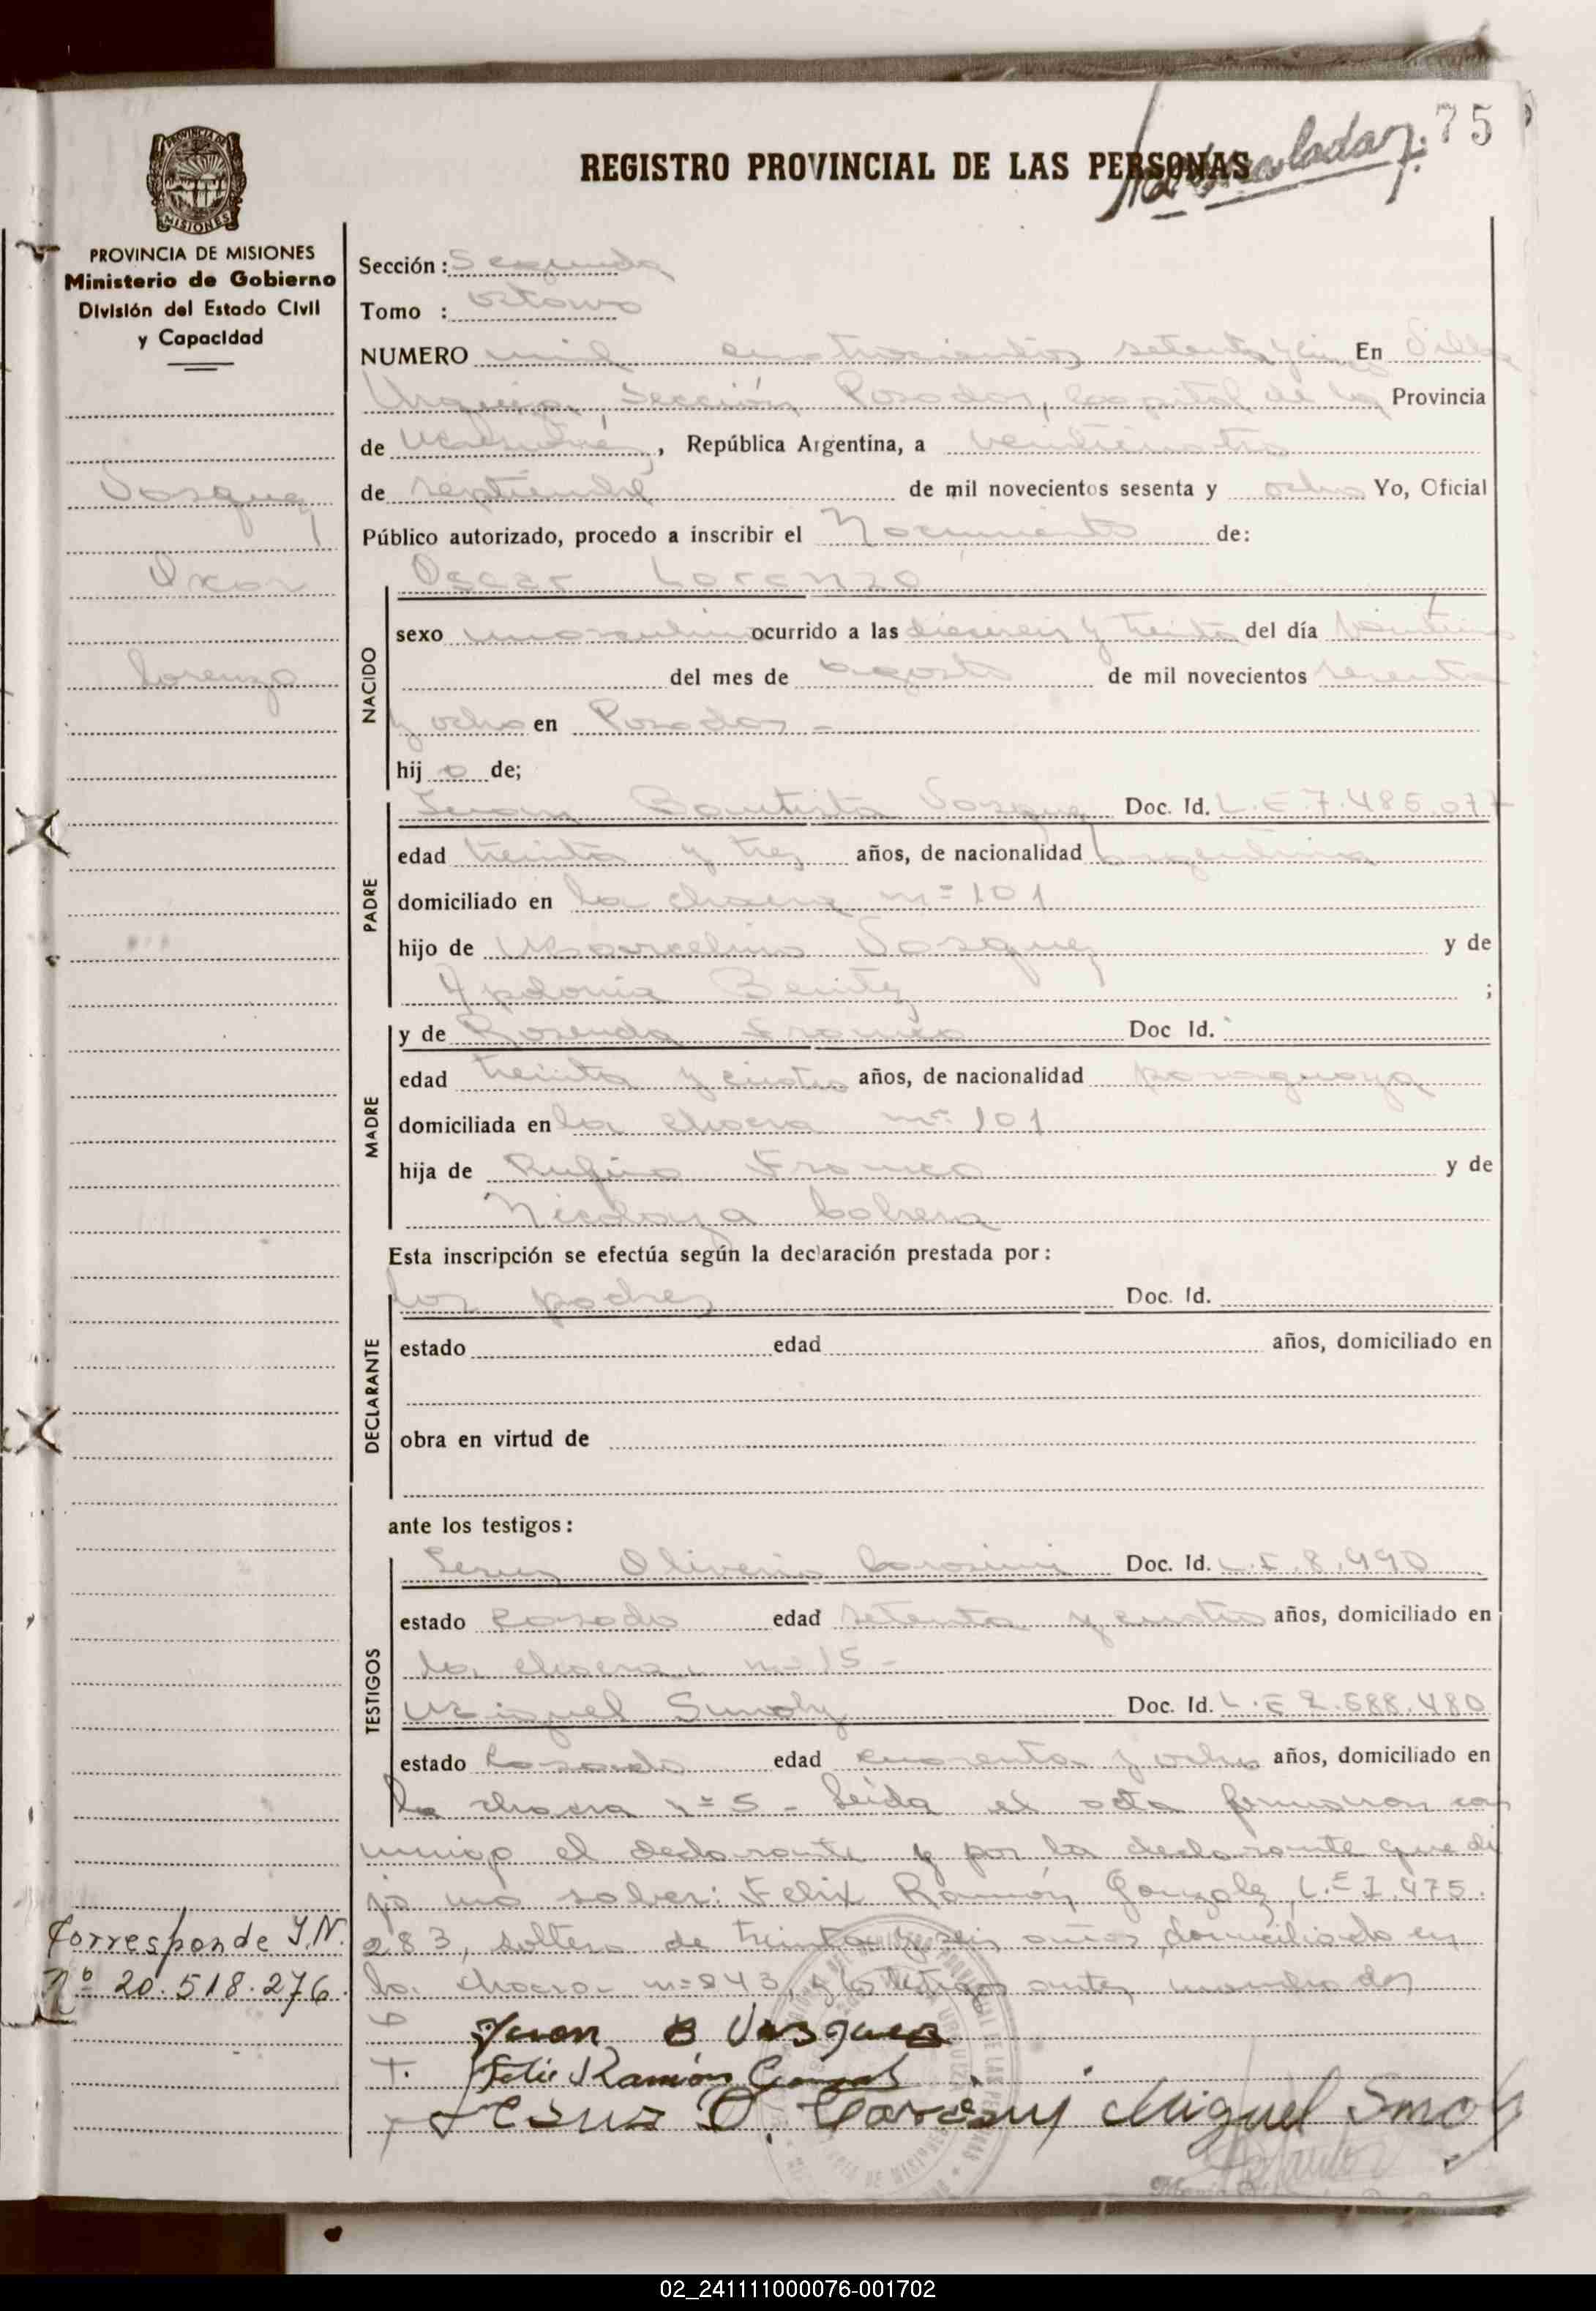 75
REGISTRO PROVINCIAL DE LAS PERSONAS
PROVINCIA DE MISIONES
Ministerio de Gobierno
División del Estado Civil
y Capacidad
Sección: Segunda
Tomo : octavo
NUMERO mil cuatrocientos setenta y cinco En Villa
Urquiza, Sección Posadas, Capital de la Provincia
de Misiones, República Argentina, a veinticuatro
de septiembre de mil novecientos sesenta y ocho Yo, Oficial
Público autorizado, procedo a inscribir el Nacimiento de:
Vasquez
Oscar
Lorenzo
Oscar Lorenzo
NACIDO
sexo masculino ocurrido a las dieciseis y treinta del día
del mes de agosto de mil novecientos sesenta
y ocho en Posadas -
hijo de;
PADRE
Juan Bautista Vasquez Doc. Id. L.E 7.485.077
edad treinta y tres años, de nacionalidad argentina
domiciliado en la chacra nº 101
hijo de Marcelino Vasquez y de
Apolonia Benitez ;
MADRE
y de Rosenda Franco Doc Id.
edad treinta y cuatro años, de nacionalidad paraguaya
domiciliada en la chacra nº 101
hija de Rufino Franco y de
Nicolaza Cabrera
Esta inscripción se efectúa según la declaración prestada por:
DECLARANTE
los padres Doc. Id.
estado edad años, domiciliado en
obra en virtud de
ante los testigos:
TESTIGOS
Jesus Oliverio Doc. Id. L.E. 8.490
estado casado edad setenta y cuatro años, domiciliado en
la chacra nº 15 -
Miguel Doc. Id. L.E 2.588.480
estado casado edad cuarenta y ocho años, domiciliado en
la chacra nº 5 - Leida el acta firmaron con
migo el declarante y por la declarante que di
jo no saber: Felix Ramón Gonzalez, L.E 7.475.
283, soltero de treinta y seis años domiciliado en
la chacra nº 243, y los testigos antes nombrados
Corresponde I.N.
Nº 20.518.276
Juan B Vasquez
T. Felix Ramón
Jesus O. Miguel
02_241111000076-001702